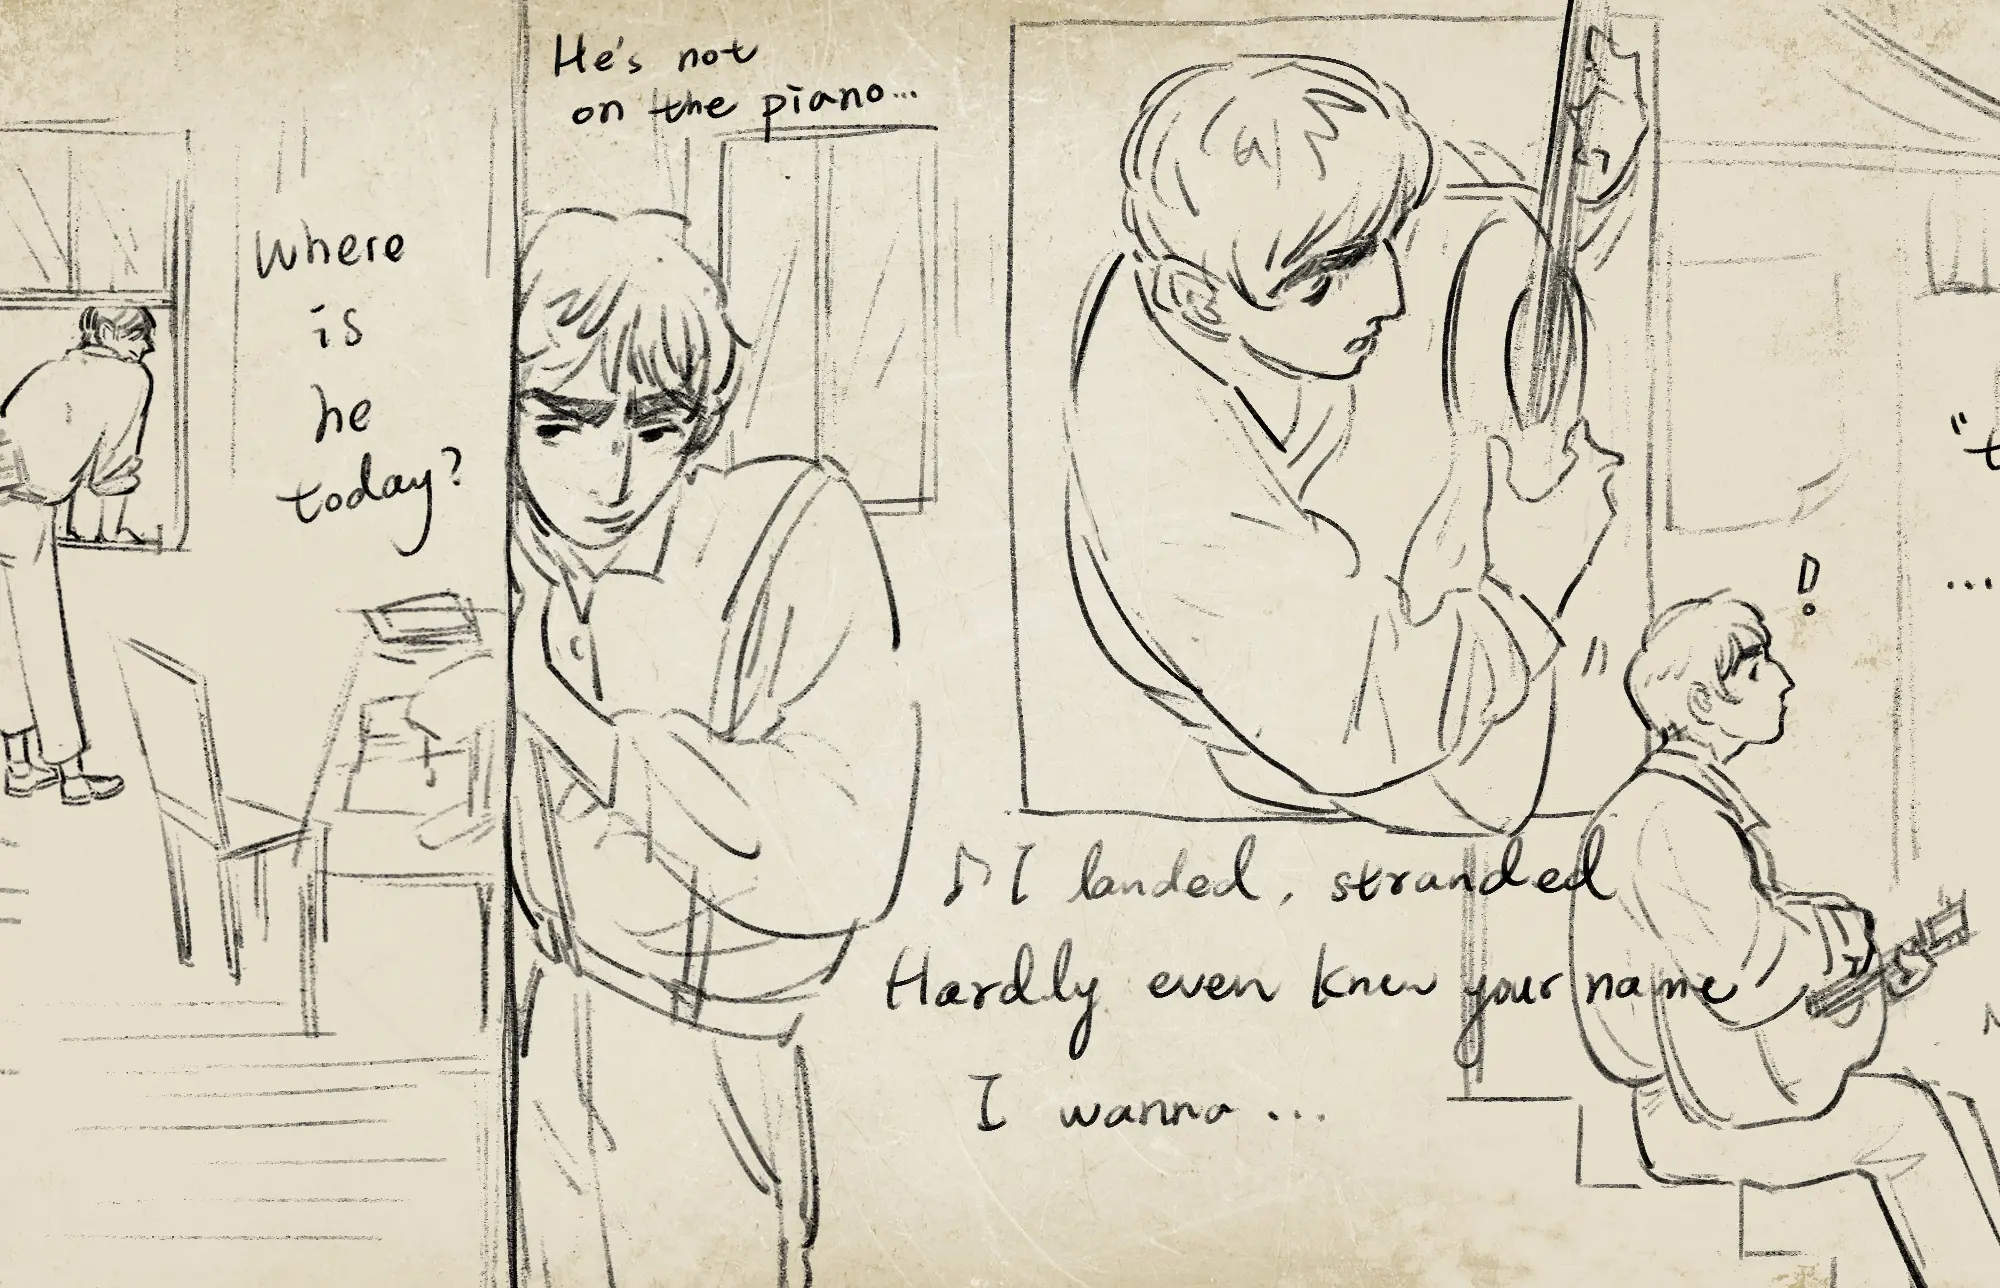 Where
is
he
today?
He's not
on the piano...
♪ I landed, stranded
Hardly even knew your name
I wanna...
!
"t
...